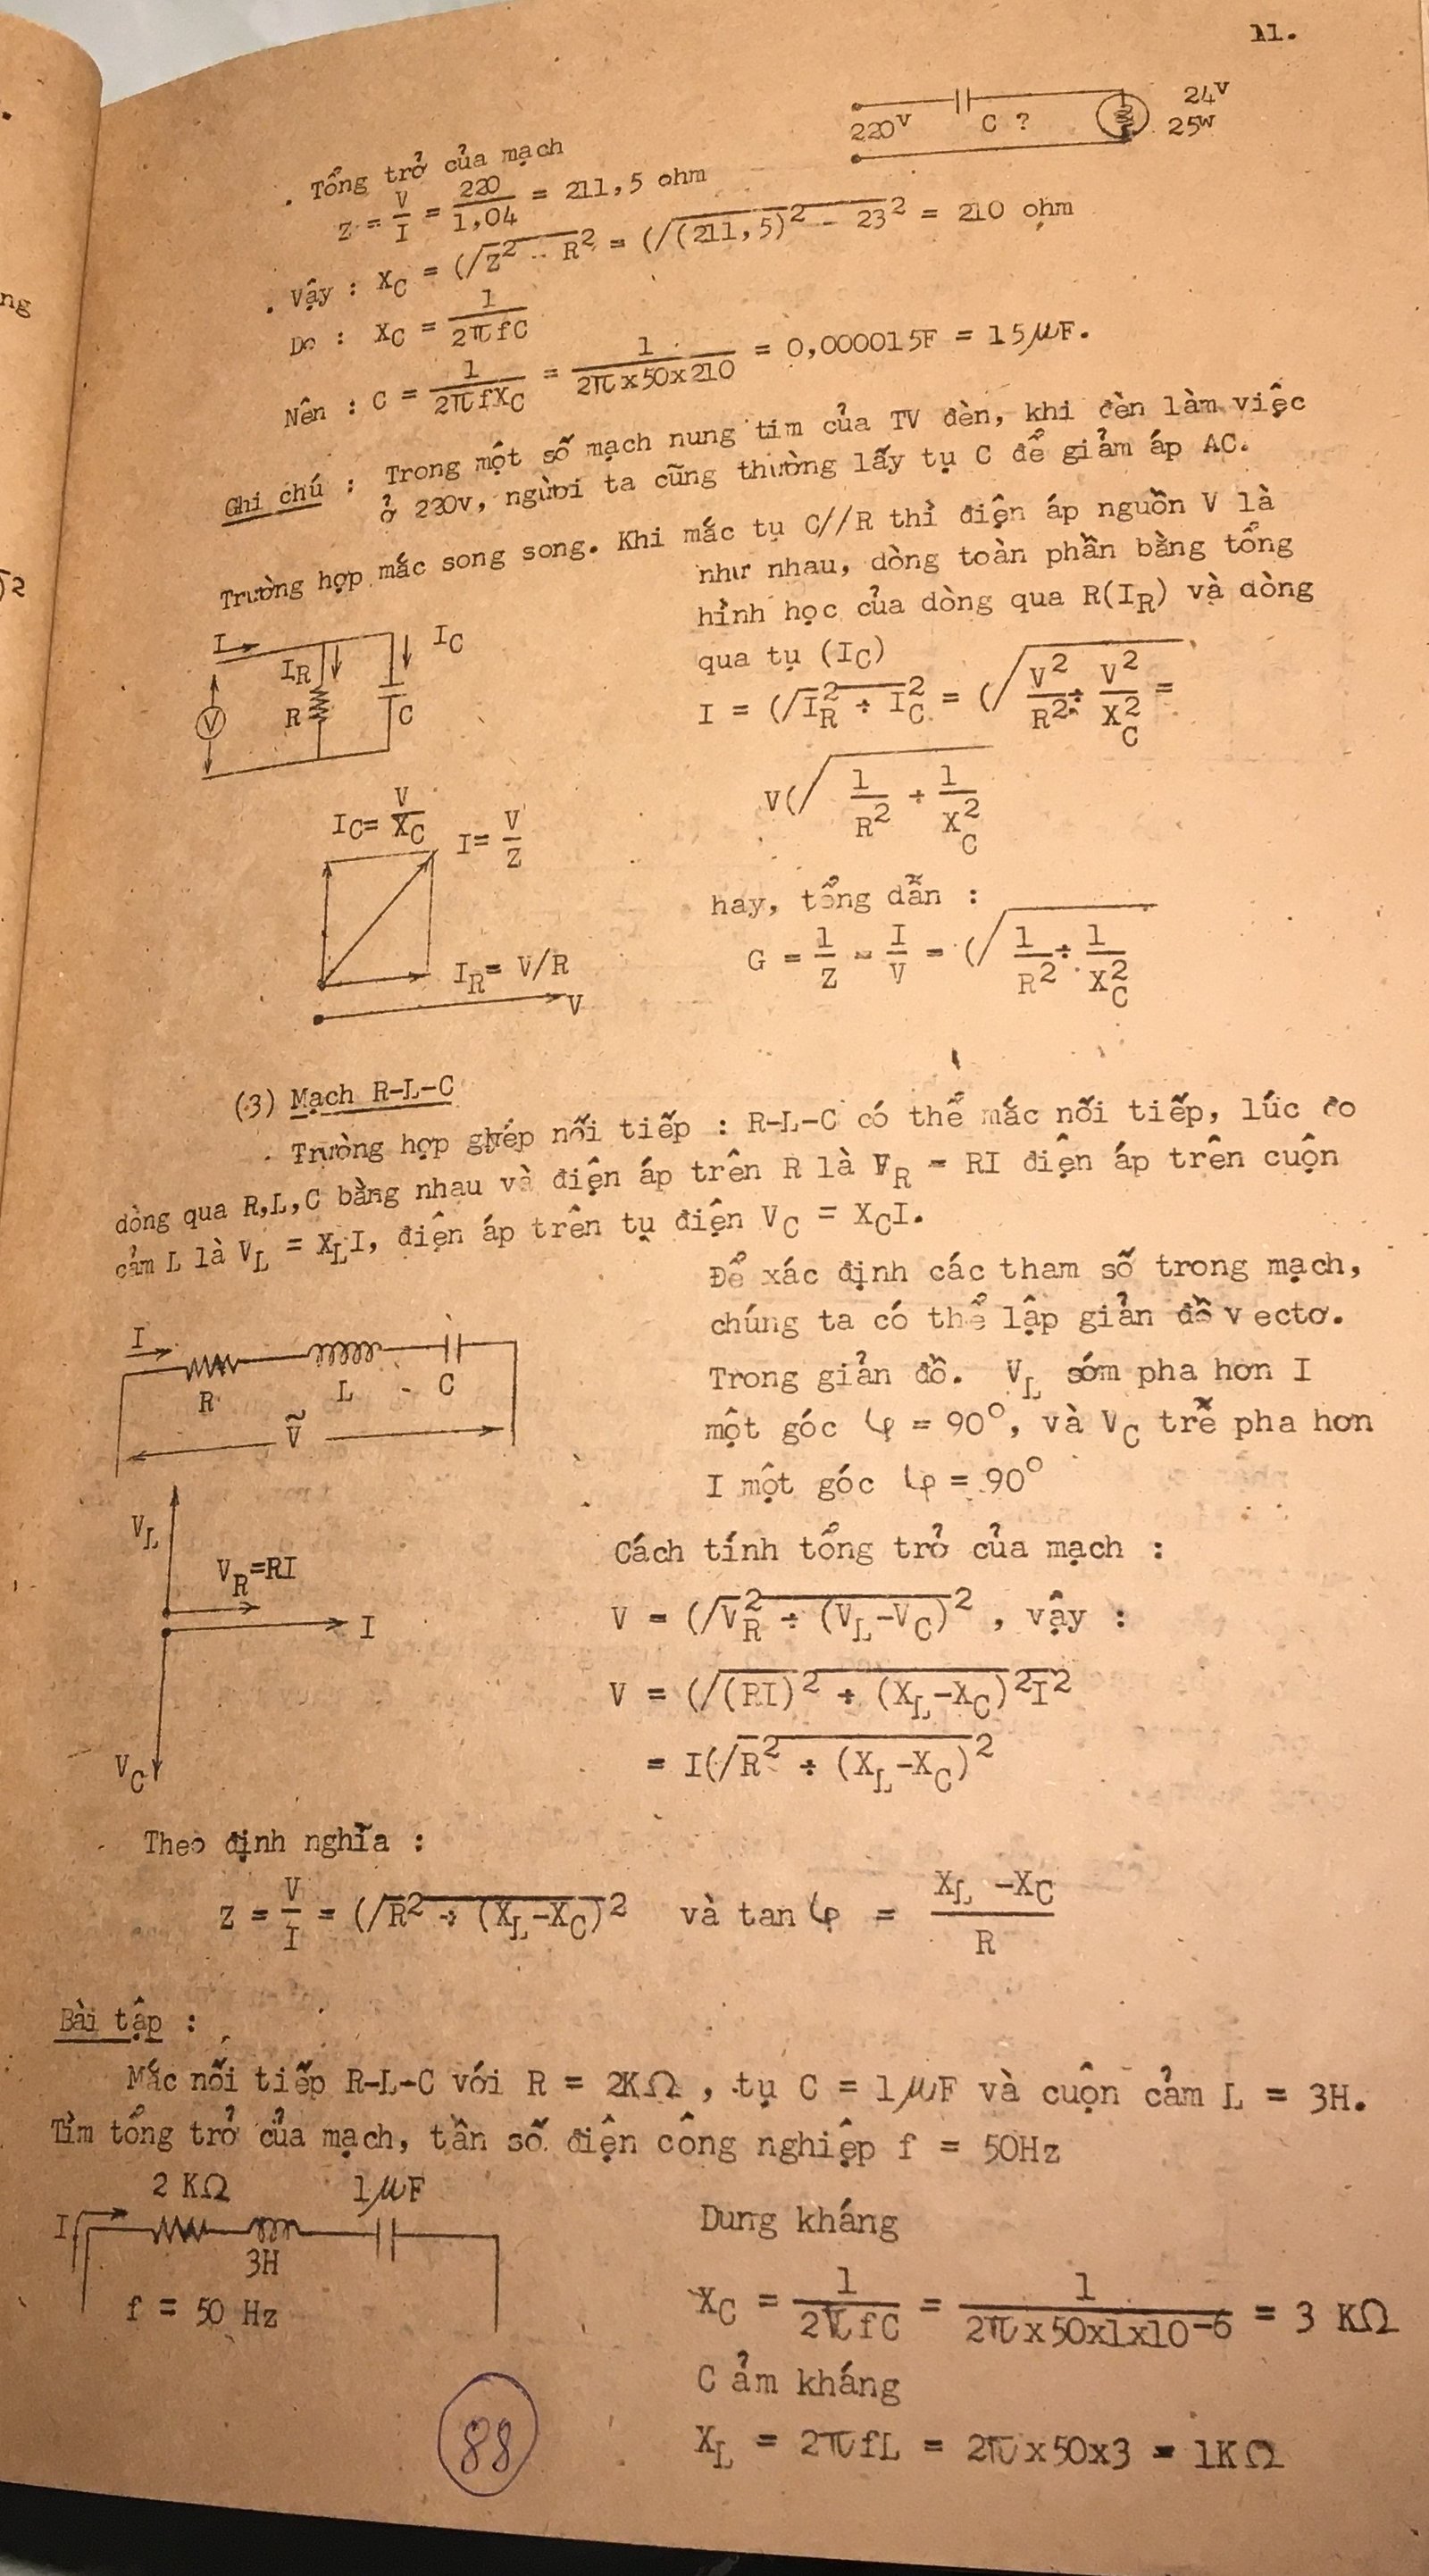 11.
220V C ? 24V 25W
. Tổng trở của mạch
Z = V/I = 220/1,04 = 211,5 ohm
. Vậy : XC = (/Z² - R² = (/(211,5)² - 23² = 210 ohm
Do : XC = 1/2πfC
Nên : C = 1/2πfXC = 1/2πx50x210 = 0,000015F = 15μF.
Ghi chú : Trong một số mạch nung tim của TV đèn, khi đèn làm việc
ở 220v, người ta cũng thường lấy tụ C để giảm áp AC.
Trường hợp mắc song song. Khi mắc tụ C//R thì điện áp nguồn V là
như nhau, dòng toàn phần bằng tổng
hình học của dòng qua R(IR) và dòng
qua tụ (IC)
I IR IC
R C
V
I = (/IR² + IC² = (/V²/R² + V²/XC² =
V(/1/R² + 1/XC²
IC= V/XC I= V/Z
IR= V/R
V
hay, tổng dẫn :
G = 1/Z = I/V = (/1/R² + 1/XC²
(3) Mạch R-L-C
. Trường hợp ghép nối tiếp : R-L-C có thể mắc nối tiếp, lúc đo
dòng qua R,L,C bằng nhau và điện áp trên R là VR = RI điện áp trên cuộn
cảm L là VL = XLI, điện áp trên tụ điện VC = XCI.
Để xác định các tham số trong mạch,
chúng ta có thể lập giản đồ vectơ.
Trong giản đồ. VL sớm pha hơn I
một góc φ = 90°, và VC trễ pha hơn
I một góc φ = 90°
I
R L - C
Ṽ
VL
VR=RI
I
VC
Cách tính tổng trở của mạch :
V = (/VR² + (VL-VC)² , vậy :
V = (/(RI)² + (XL-XC)²I²
= I(/R² + (XL-XC)²
Theo định nghĩa :
Z = V/I = (/R² + (XL-XC)² và tan φ = XL -XC/R
Bài tập :
Mắc nối tiếp R-L-C với R = 2KΩ , tụ C = 1μF và cuộn cảm L = 3H.
Tìm tổng trở của mạch, tần số điện công nghiệp f = 50Hz
2 KΩ 1μF
I
3H
f = 50 Hz
Dung kháng
XC = 1/2πfC = 1/2πx50x1x10⁻⁶ = 3 KΩ
Cảm kháng
XL = 2πfL = 2πx50x3 = 1KΩ
88